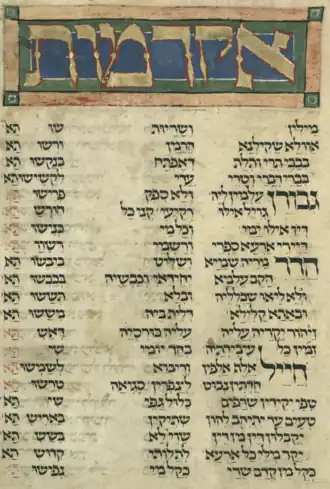 אקדמות
מילין ושריות שו תא
אוולא שקילנא הרמין ורשו תא
בבבי תרי ותלת דאפתח בנקשו תא
בברי דברי וטרי עדי לקשישו תא
גבורן עלמין ליה ולא ספק פרישו תא
גויל אילו רקיעי קני כל חורש תא
דיו אילו ימי וכל מי
דיירי ארעא ספרי ורשמי רשוי תא
הדר מריה שמיא ושליט ביבשו תא
הקם עלמא יחידאי וכבשיה בכבשו תא
ולא ליאו שכלליה ובלא תששו תא
ובאתא קלילא דלית ביה מששו תא
זיהור יקריה עליה עליה כורסיה דאש תא
זמין כל עיבידתיה בהך יומי שי תא
חייל אלף אלפין וריבוא לשמשו תא
חדתין נבוט לצפרין סגיאה טרשו תא
טפי יקידין שרפים כלול גפי שי תא
טעים עד יתיהב להון שתיקין באדיש תא
יקבלון דין מן דין שוי לא בשש תא
יקר מלי כל ארעא לתלותי קדוש תא
כקל מן קדם שדי כקל מי נפישו תא